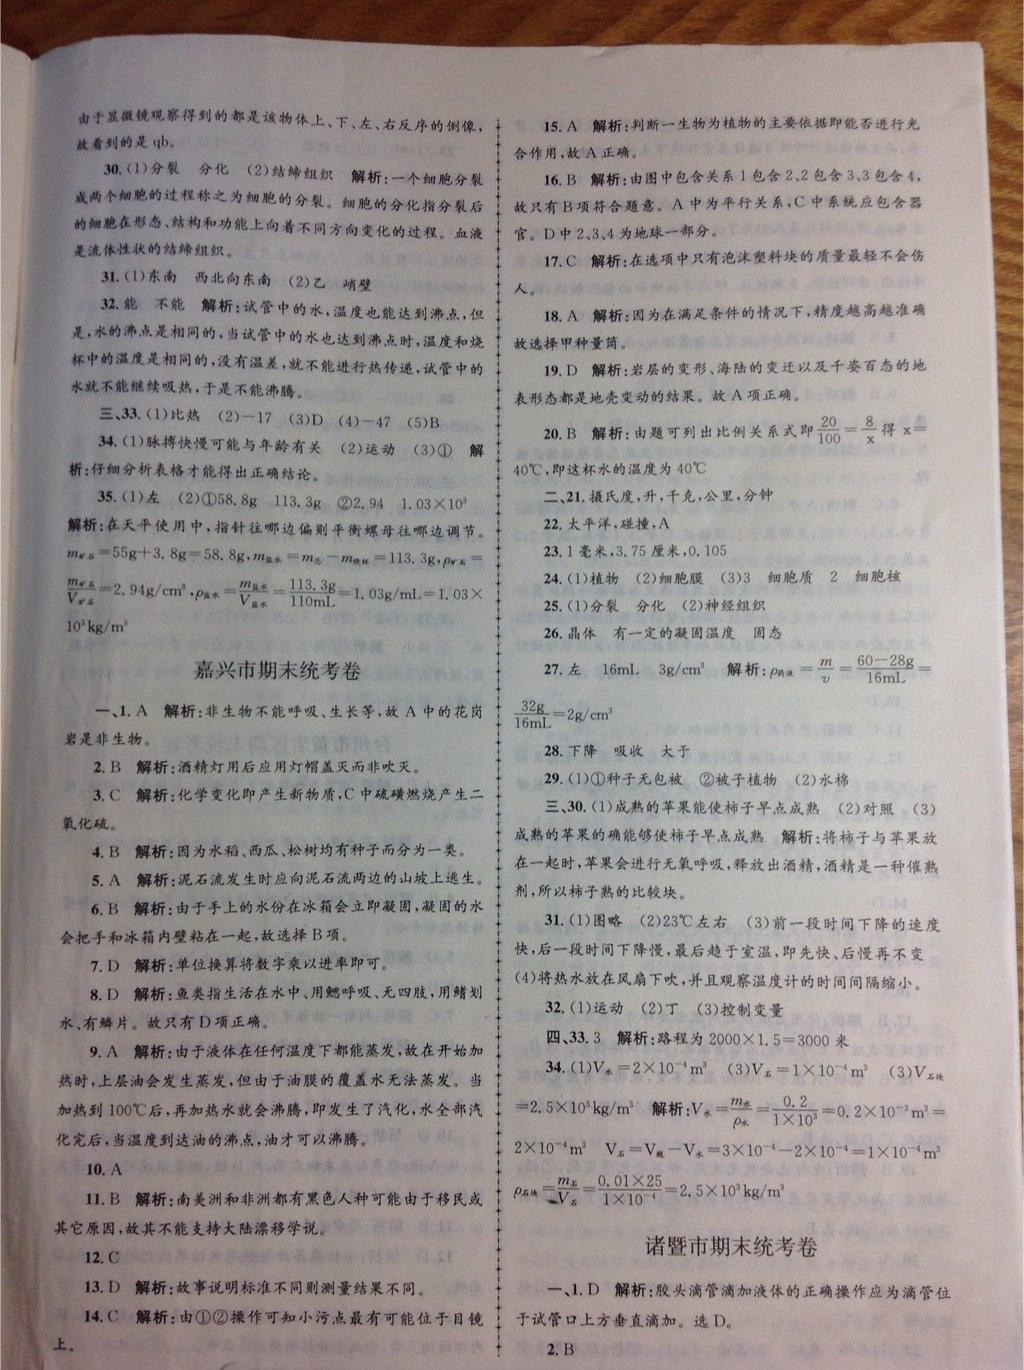 由于显微镜观察得到的都是该物体上、下、左、右反序的倒像,
故看到的是 qb。
30.(1)分裂 分化 (2)结缔组织 解析:一个细胞分裂
成两个细胞的过程称之为细胞的分裂。细胞的分化指分裂后
的细胞在形态、结构和功能上向着不同方向变化的过程。血液
是流体性状的结缔组织。
31.(1)东南 西北向东南 (2)乙 峭壁
32.能 不能 解析:试管中的水,温度也能达到沸点,但
是,水的沸点是相同的,当试管中的水也达到沸点时,温度和烧
杯中的温度是相同的,没有温差,就不能进行热传递,试管中的
水就不能继续吸热,于是不能沸腾。
三、33.(1)比热 (2)-17 (3)D (4)-47 (5)B
34.(1)脉搏快慢可能与年龄有关 (2)运动 (3)① 解
析:仔细分析表格才能得出正确结论。
35.(1)左 (2)①58.8g 113.3g ②2.94 1.03×10³
解析:在天平使用中,指针往哪边偏则平衡螺母往哪边调节。
m矿石=55g+3.8g=58.8g,m盐水=m总-m烧杯=113.3g,ρ矿石=
m矿石/V矿石=2.94g/cm³,ρ盐水=m盐水/V盐水=113.3g/110mL=1.03g/mL=1.03×
10³kg/m³
嘉兴市期末统考卷
一、1.A 解析:非生物不能呼吸、生长等,故 A 中的花岗
岩是非生物。
2.B 解析:酒精灯用后应用灯帽盖灭而非吹灭。
3.C 解析:化学变化即产生新物质,C 中硫磺燃烧产生二
氧化硫。
4.B 解析:因为水稻、西瓜、松树均有种子而分为一类。
5.A 解析:泥石流发生时应向泥石流两边的山坡上逃生。
6.B 解析:由于手上的水份在冰箱会立即凝固,凝固的水
会把手和冰箱内壁粘在一起,故选择 B 项。
7.D 解析:单位换算将数字乘以进率即可。
8.D 解析:鱼类指生活在水中、用鳃呼吸、无四肢,用鳍划
水、有鳞片。故只有 D 项正确。
9.A 解析:由于液体在任何温度下都能蒸发,故在开始加
热时,上层油会发生蒸发,但由于油膜的覆盖水无法蒸发。当
加热到 100℃后,再加热水就会沸腾,即发生了汽化,水全部汽
化完后,当温度到达油的沸点,油才可以沸腾。
10.A
11.B 解析:南美洲和非洲都有黑色人种可能由于移民或
其它原因,故其不能支持大陆漂移学说。
12.C
13.D 解析:故事说明标准不同则测量结果不同。
14.C 解析:由①②操作可知小污点最有可能位于目镜
上。
15.A 解析:判断一生物为植物的主要依据即能否进行光
合作用,故 A 正确。
16.B 解析:由图中包含关系 1 包含 2、2 包含 3、3 包含 4,
故只有 B 项符合题意。A 中为平行关系,C 中系统应包含器
官。D 中 2、3、4 为地球一部分。
17.C 解析:在选项中只有泡沫塑料块的质量最轻不会伤
人。
18.A 解析:因为在满足条件的情况下,精度越高越准确
故选择甲种量筒。
19.D 解析:岩层的变形、海陆的变迁以及千姿百态的地
表形态都是地壳变动的结果。故 A 项正确。
20.B 解析:由题可列出比例关系式即20/100=8/x得 x=
40℃,即这杯水的温度为 40℃
二、21.摄氏度,升,千克,公里,分钟
22.太平洋,碰撞,A
23.1 毫米,3.75 厘米,0.105
24.(1)植物 (2)细胞膜 (3)3 细胞质 2 细胞核
25.(1)分裂 分化 (2)神经组织
26.晶体 有一定的凝固温度 固态
27.左 16mL 3g/cm³ 解析:ρ药液=m/v=60-28g/16mL=
32g/16mL=2g/cm³
28.下降 吸收 大于
29.(1)①种子无包被 ②被子植物 (2)水棉
三、30.(1)成熟的苹果能使柿子早点成熟 (2)对照 (3)
成熟的苹果的确能够使柿子早点成熟 解析:将柿子与苹果放
在一起时,苹果会进行无氧呼吸,释放出酒精,酒精是一种催熟
剂,所以柿子熟的比较块。
31.(1)图略 (2)23℃左右 (3)前一段时间下降的速度
快,后一段时间下降慢,最后趋于室温,即先快、后慢再不变
(4)将热水放在风扇下吹,并且观察温度计的时间间隔缩小。
32.(1)运动 (2)丁 (3)控制变量
四、33.3 解析:路程为 2000×1.5=3000 米
34.(1)V水=2×10⁻⁴m³ (3)V石=1×10⁻⁴m³ (3)V石块
=2.5×10³kg/m³ 解析:V水=m水/ρ水=0.2/1×10³=0.2×10⁻³m³=
2×10⁻⁴m³ V石=V瓶-V水=3×10⁻⁴-2×10⁻⁴=1×10⁻⁴m³
ρ石块=m石/V石=0.01×25/1×10⁻⁴=2.5×10³kg/m³
诸暨市期末统考卷
一、1.D 解析:胶头滴管滴加液体的正确操作应为滴管位
于试管口上方垂直滴加。选 D。
2.B